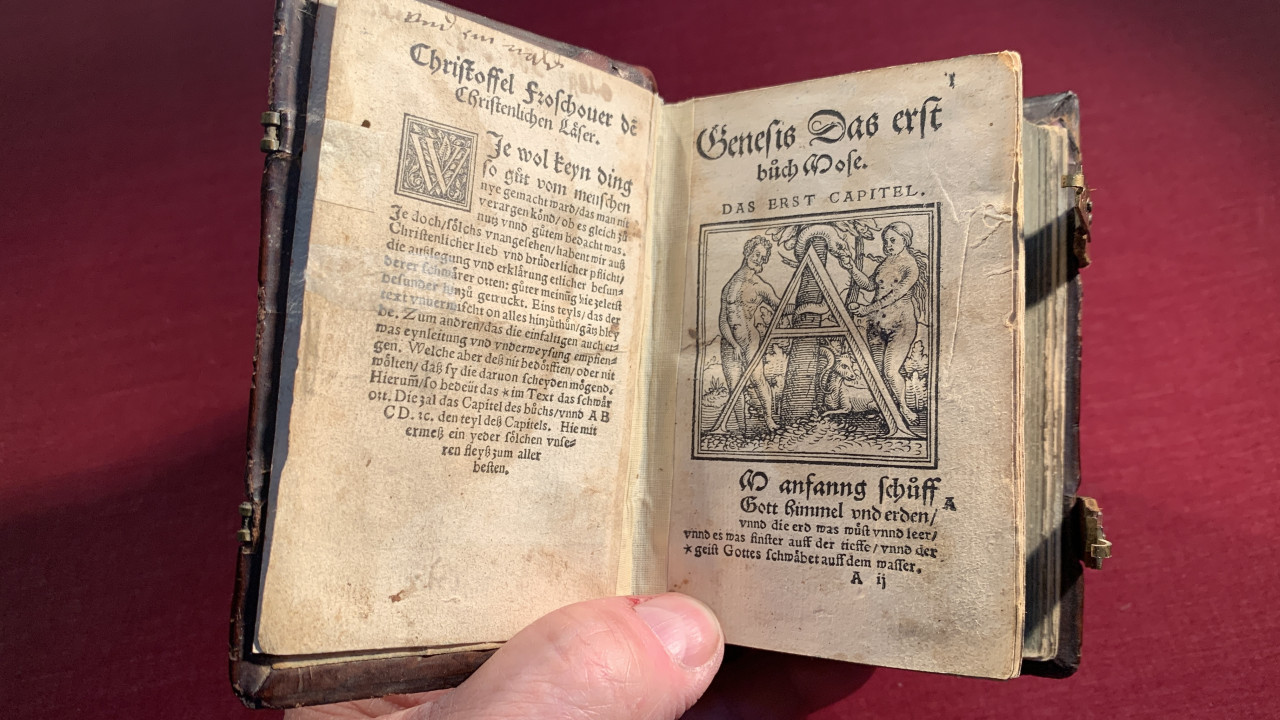 Vnd ein
Christoffel Froschouer dē
Christenlichen Läser.
WJe wol keyn ding
so gůt vom menschen
nye gemacht ward/das man nit
verargen könd/ob es gleich zů
nutz vnnd gůtem bedacht was.
Je doch/sölchs vnangesehen/habent wir auß
Christenlicher lieb vnd brůderlicher pflicht/
die außlegung vnd erklärung etlicher besun-
derer schwärer orten: gůter meinūg hie zeletst
besunder hinzů getruckt. Eins teyls/das der
text vnuermischt on alles hinzůthůn/gātz bley
be. Zum andren/das die einfaltigen auch et-
was eynleitung vnd vnderweysung empfien-
gen. Welche aber deß nit bedörfften/oder nit
wölten/daß sy die daruon scheyden mögend.
Hierum̄/so bedeüt das * im Text das schwär
ort. Die zal das Capitel des bůchs/vnnd A B
C D. ꝛc. den teyl deß Capitels. Hie mit
ermeß ein yeder sölchen vnse-
ren fleyß zum aller
besten.
1
Genesis Das erst
bůch Mose.
DAS ERST CAPITEL.
A
M anfanng schůff A
Gott himmel vnd erden/
vnnd die erd was wůst vnnd leer/
vnnd es was finster auff der tieffe/vnnd der
* geist Gottes schwäbet auff dem wasser.
A ij